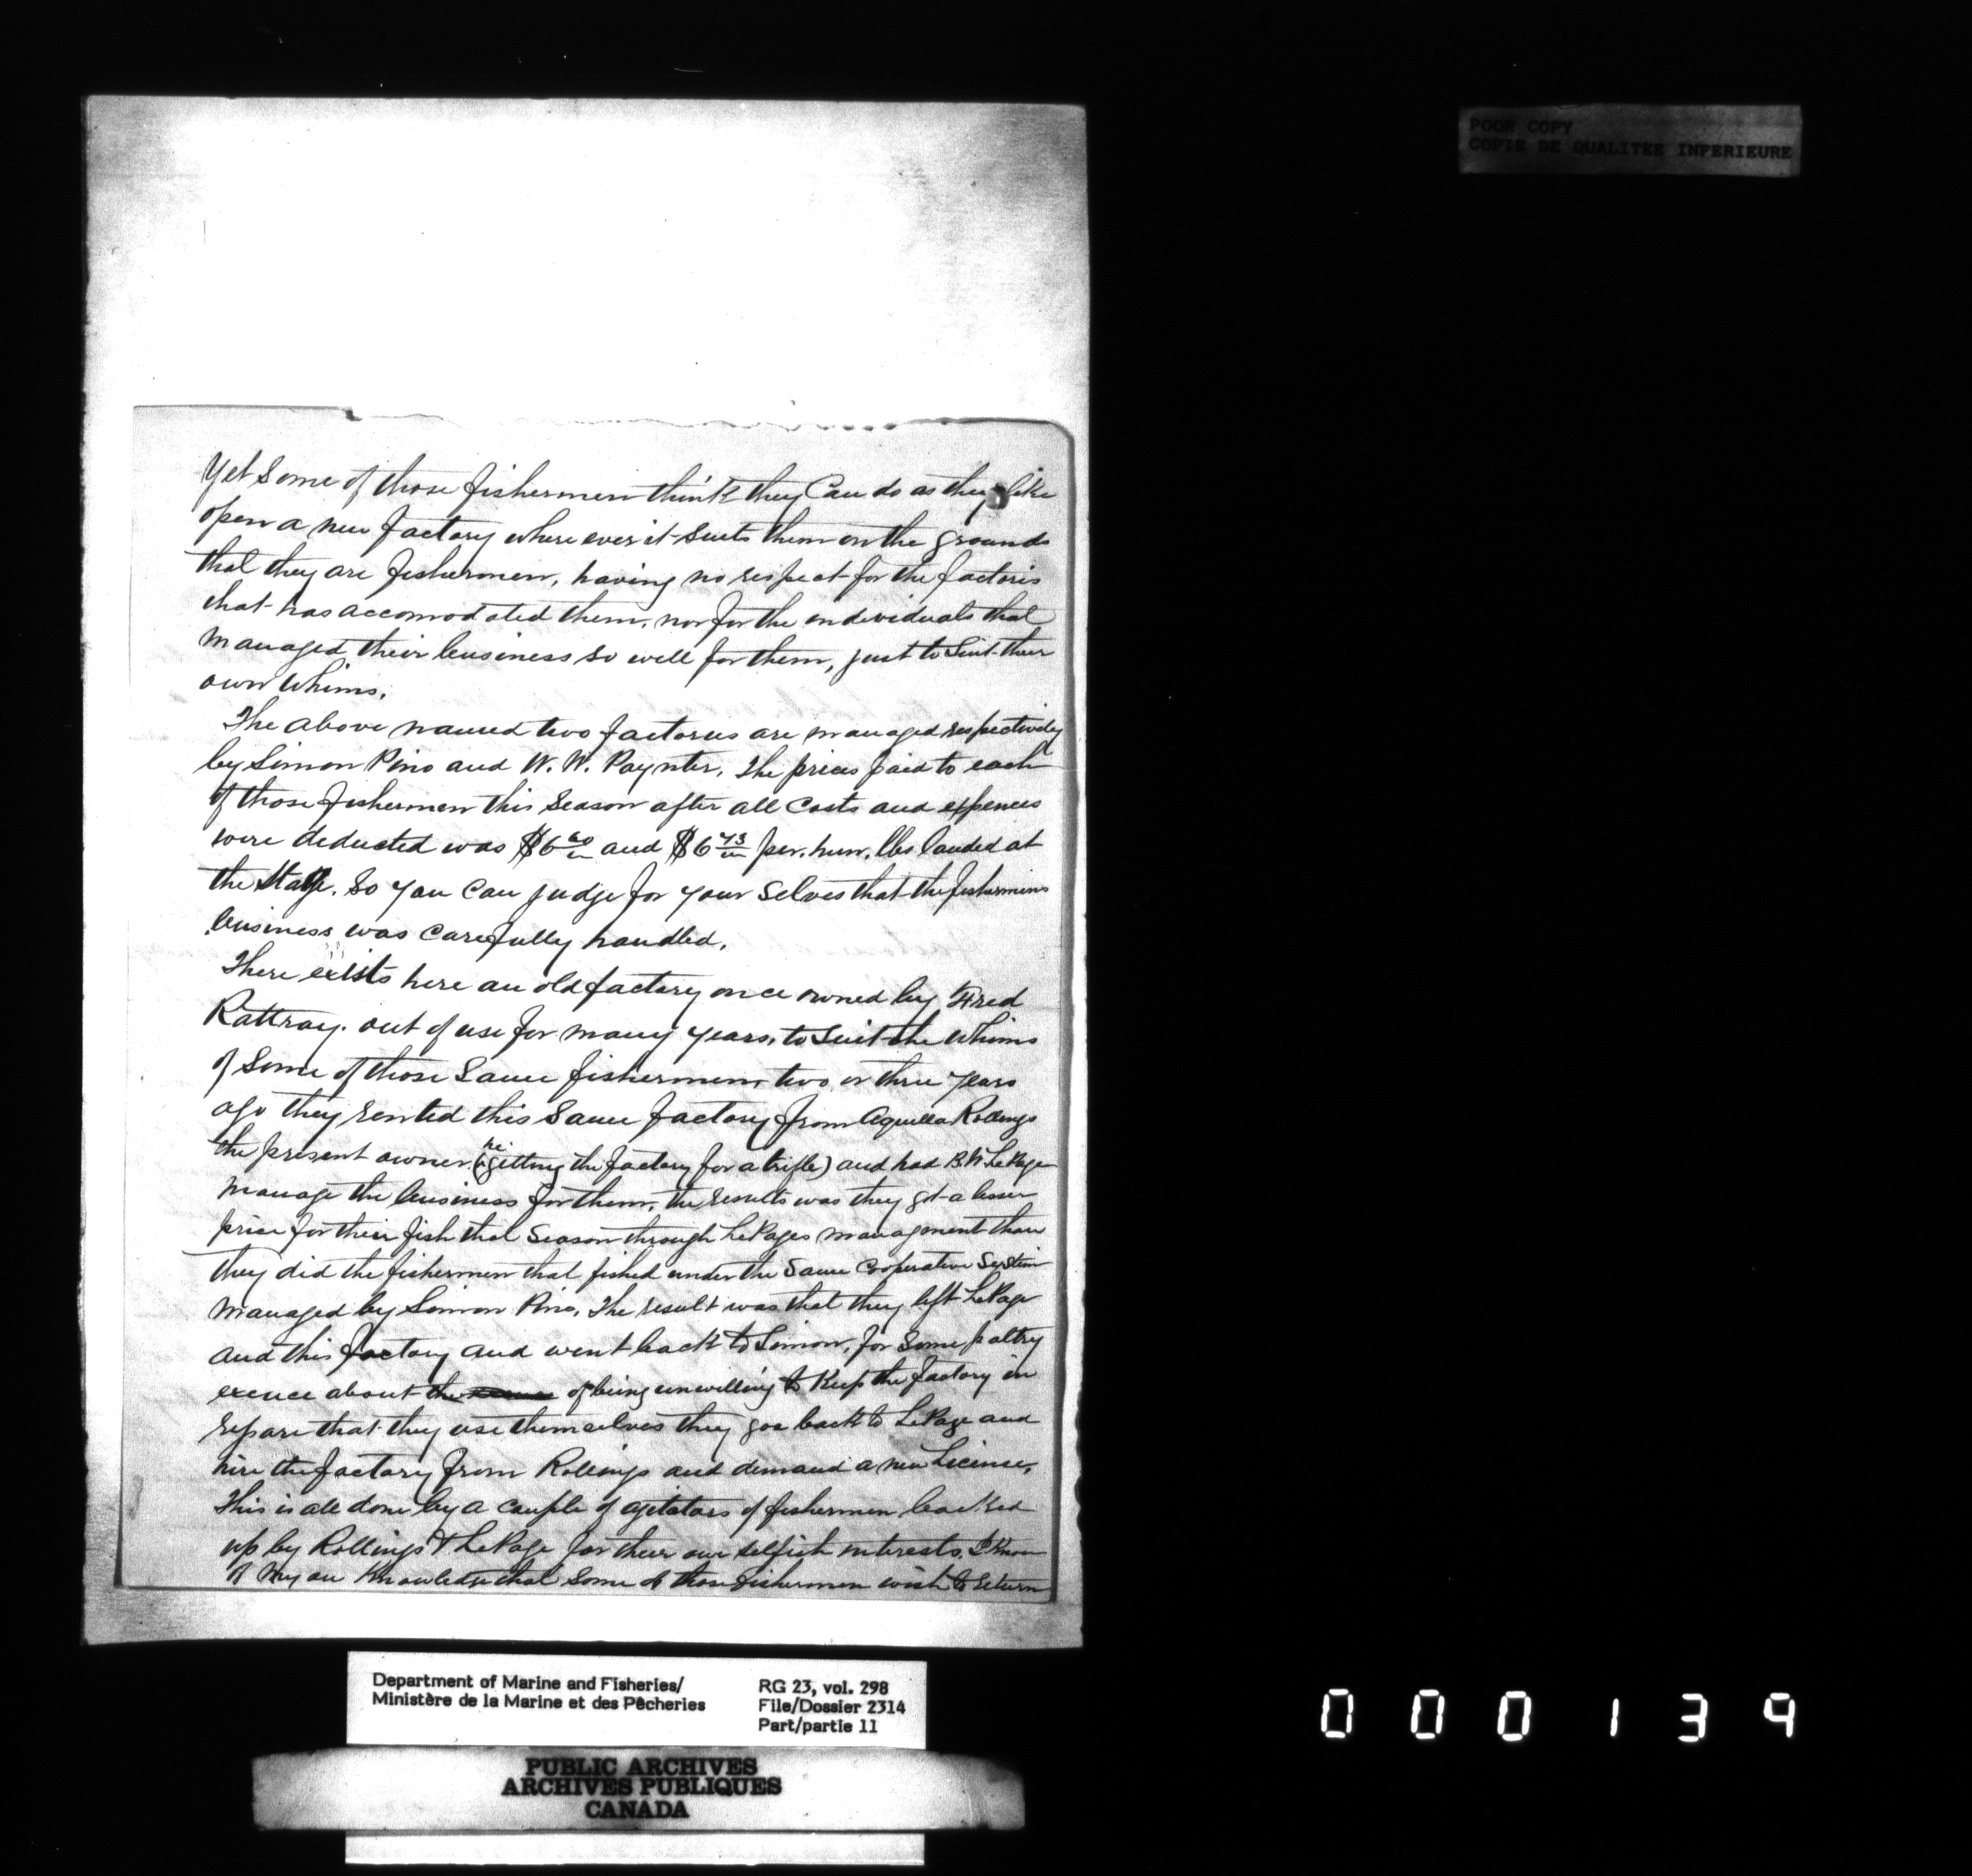 POOR COPY
COPIE DE QUALITEE INFERIEURE
Yet Some of those fishermen think they Can do as they like
open a new factory where ever it suits them on the grounds
that they are fishermen, having no respect for the factoris
that has accomodated them, nor for the individuals that
managed their business so well for them, just to Suit their
own Whims.
The above named two factories are managed respectively
by Simon Pino and W. W. Paynter. The prices paid to each
of those fishermen this Season after all Costs and expences
were deducted was $6 and $6 per. hun. lbs landed at
the Stage. So you Can judge for your Selves that the fishermens
business was Carefully handled.
There exists here an old factory once owned by Fred
Rattray. out of use for many years, to Suit the Whims
of Some of those Same fishermen, two or three years
ago they rented this Same factory from Aquilla Rollings
the present owner (he getting the factory for a trifle) and had B W LePage
manage the business for them, the results was they got a lesser
price for their fish that Season through LePages managment than
they did the fishermen that fished under the Same Cooperative System
managed by Simon Pino. The result was that they left LePage
and this factory and went back to Simon, for Some paltry
excuce about the of being unwilling to Keep the factory in
repare that they use themselves they goe back to LePage and
hire the factory from Rollings and demand a new License.
This is all done by a Couple of agitators of fishermen backed
up by Rollings & LePage for their own selfish interests. I Know
of my own Knowledge that Some of those fishermen wish to return
Department of Marine and Fisheries/
Ministère de la Marine et des Pêcheries
RG 23, vol. 298
File/Dossier 2314
Part/partie 11
PUBLIC ARCHIVES
ARCHIVES PUBLIQUES
CANADA
000139